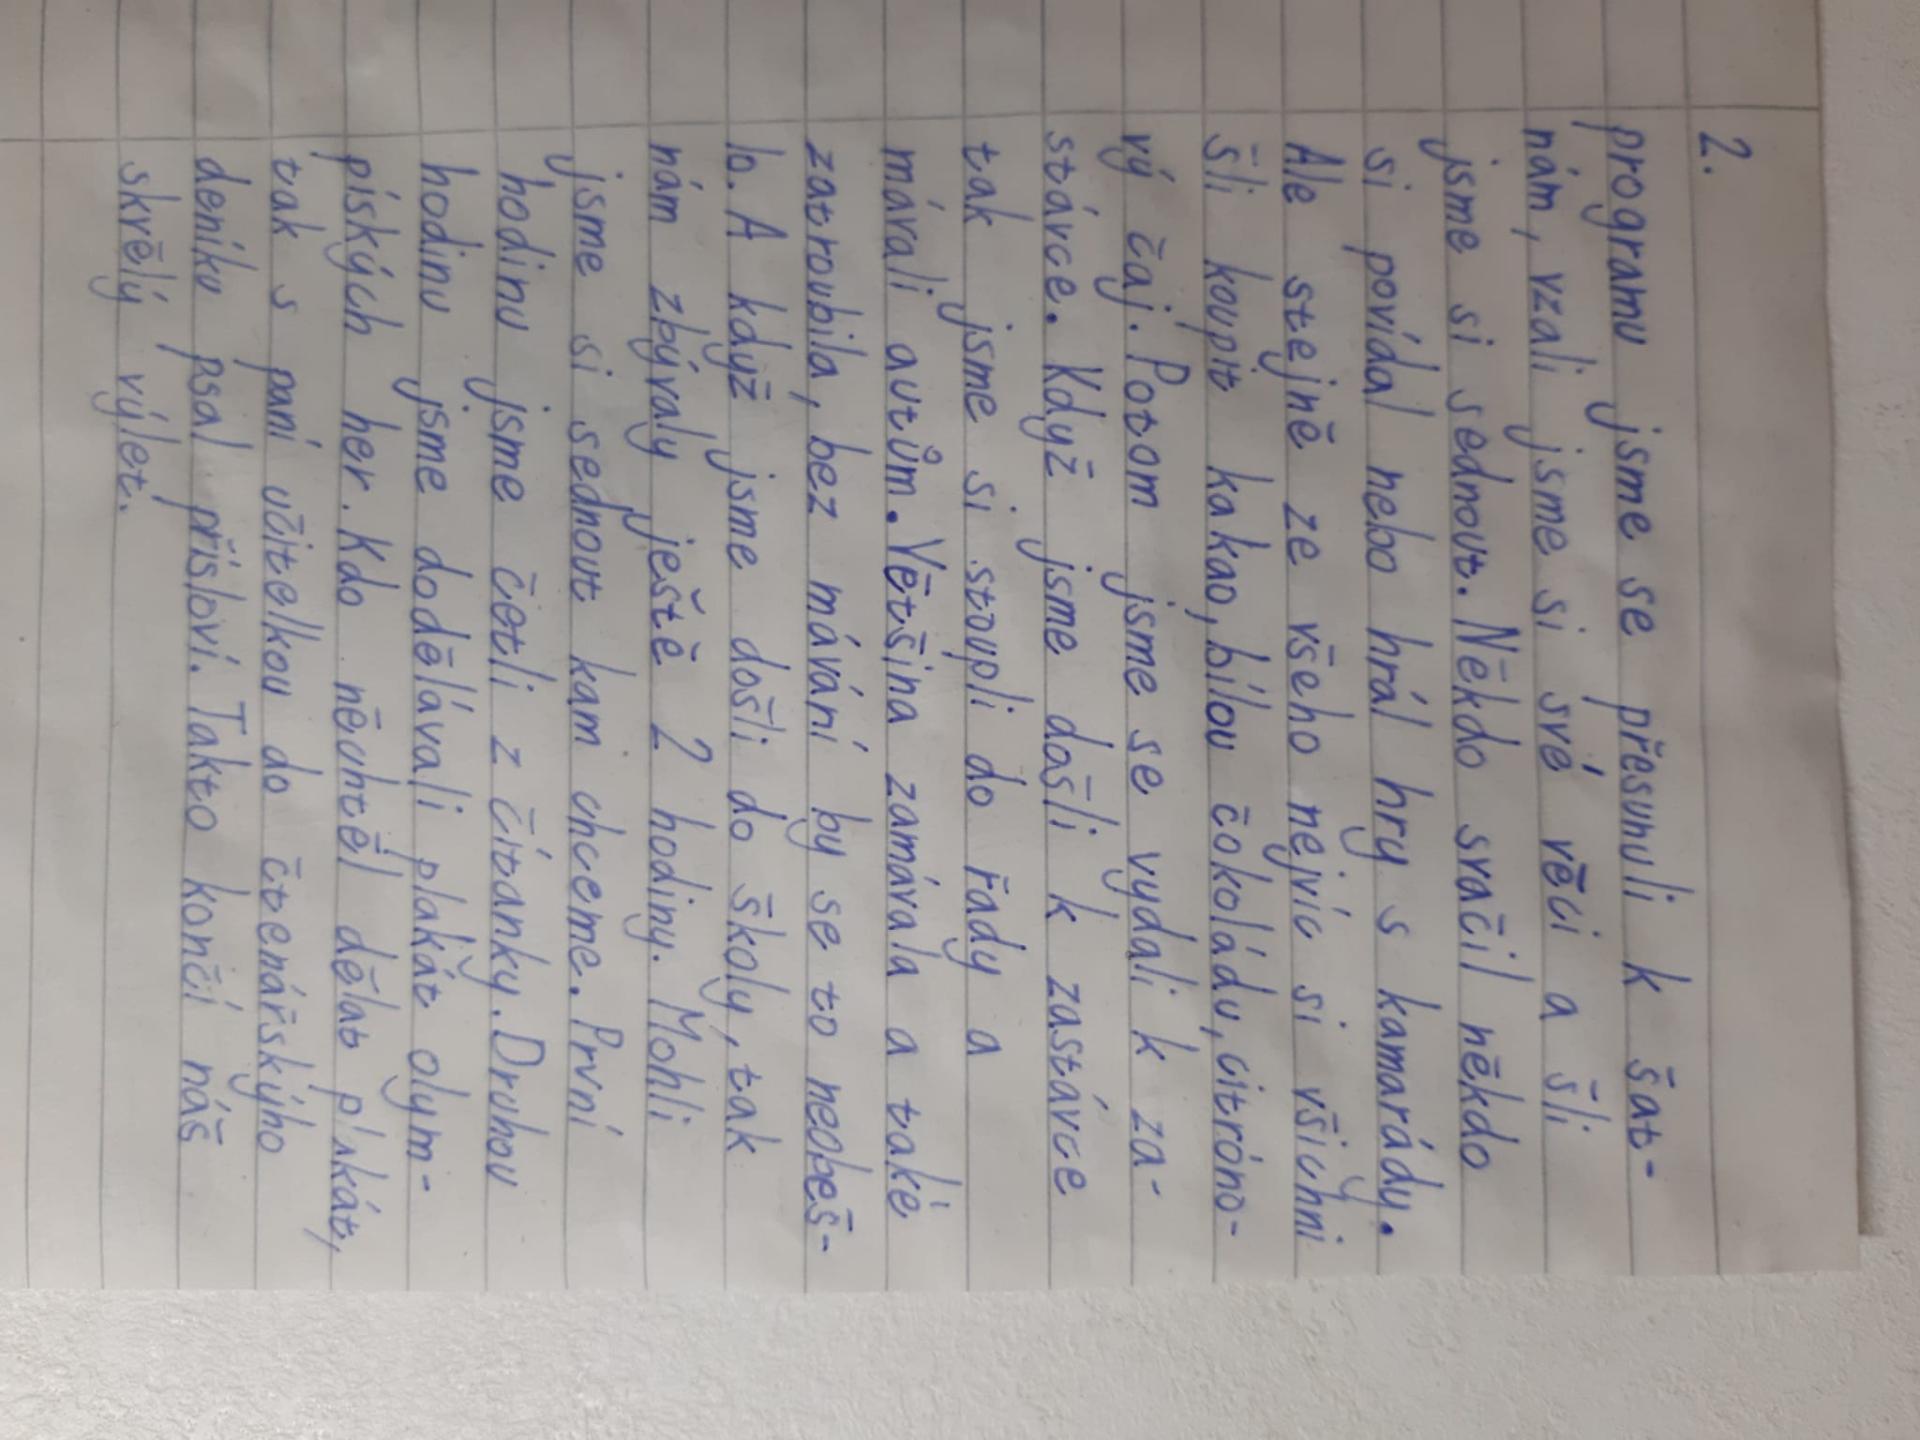 2.
programu jsme se přesunuli k šat-
nám, vzali jsme si své věci a šli
jsme si sednout. Někdo svačil někdo
si povídal nebo hrál hry s kamarády.
Ale stejně ze všeho nejvíc si všichni
šli koupit kakao, bílou čokoládu, citróno-
vý čaj. Potom jsme se vydali k za-
stávce. Když jsme došli k zastávce
tak jsme si stoupli do řady a
mávali autům. Většina zamávala a také
zatroubila, bez mávání by se to neobeš-
lo. A když jsme došli do školy, tak
nám zbývaly ještě 2 hodiny. Mohli
jsme si sednout kam chceme. První
hodinu jsme četli z čítanky. Druhou
hodinu jsme dodělávali plakát olym-
píských her. Kdo něchtěl dělat plakát,
tak s paní učitelkou do čtenářskýho
deníku psal přísloví. Takto končí náš
skvělý výlet.